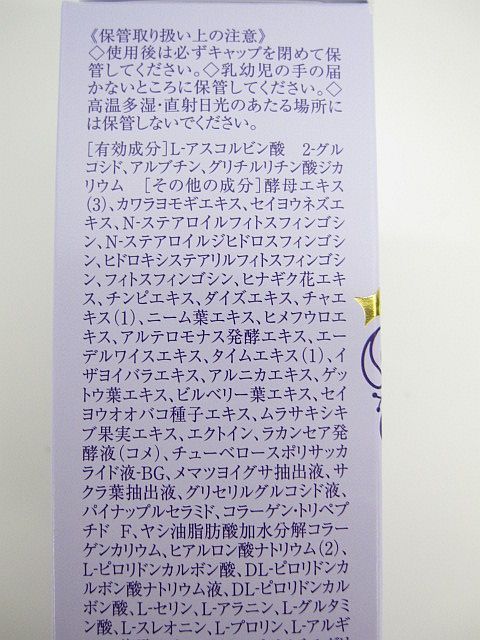 《保管取り扱い上の注意》
◇使用後は必ずキャップを閉めて保
管してください。◇乳幼児の手の届
かないところに保管してください。◇
高温多湿・直射日光のあたる場所に
は保管しないでください。
[有効成分]L-アスコルビン酸 2-グル
コシド、アルブチン、グリチルリチン酸ジカ
リウム [その他の成分]酵母エキス
(3)、カワラヨモギエキス、セイヨウネズエ
キス、N-ステアロイルフィトスフィンゴシ
ン、N-ステアロイルジヒドロスフィンゴシ
ン、ヒドロキシステアリルフィトスフィンゴシ
ン、フィトスフィンゴシン、ヒナギク花エキ
ス、チンピエキス、ダイズエキス、チャエ
キス(1)、ニーム葉エキス、ヒメフウロエ
キス、アルテロモナス発酵エキス、エー
デルワイスエキス、タイムエキス(1)、イ
ザヨイバラエキス、アルニカエキス、ゲッ
トウ葉エキス、ビルベリー葉エキス、セイ
ヨウオオバコ種子エキス、ムラサキシキ
ブ果実エキス、エクトイン、ラカンセア発
酵液(コメ)、チューベロースポリサッカ
ライド液-BG、メマツヨイグサ抽出液、サ
クラ葉抽出液、グリセリルグルコシド液、
パイナップルセラミド、コラーゲン・トリペプ
チド F、ヤシ油脂肪酸加水分解コラー
ゲンカリウム、ヒアルロン酸ナトリウム(2)、
L-ピロリドンカルボン酸、DL-ピロリドンカ
ルボン酸ナトリウム液、DL-ピロリドンカル
ボン酸、L-セリン、L-アラニン、L-グルタミ
ン酸、L-スレオニン、L-プロリン、L-アルギ